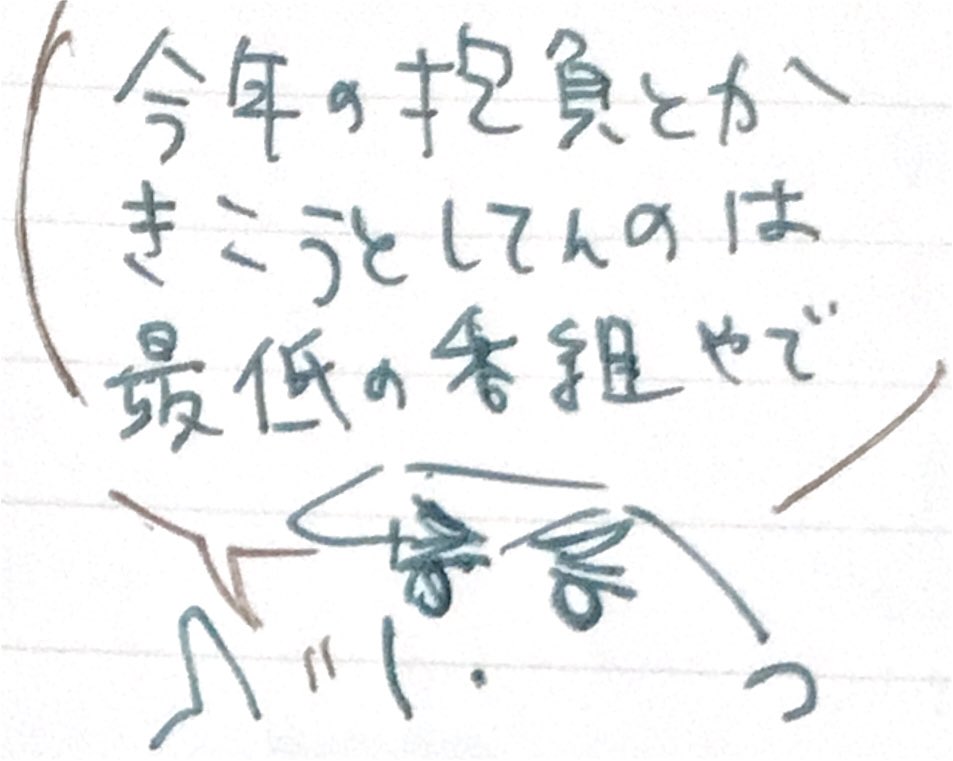 今年の抱負とか
きこうとしてんのは
最低の番組やで